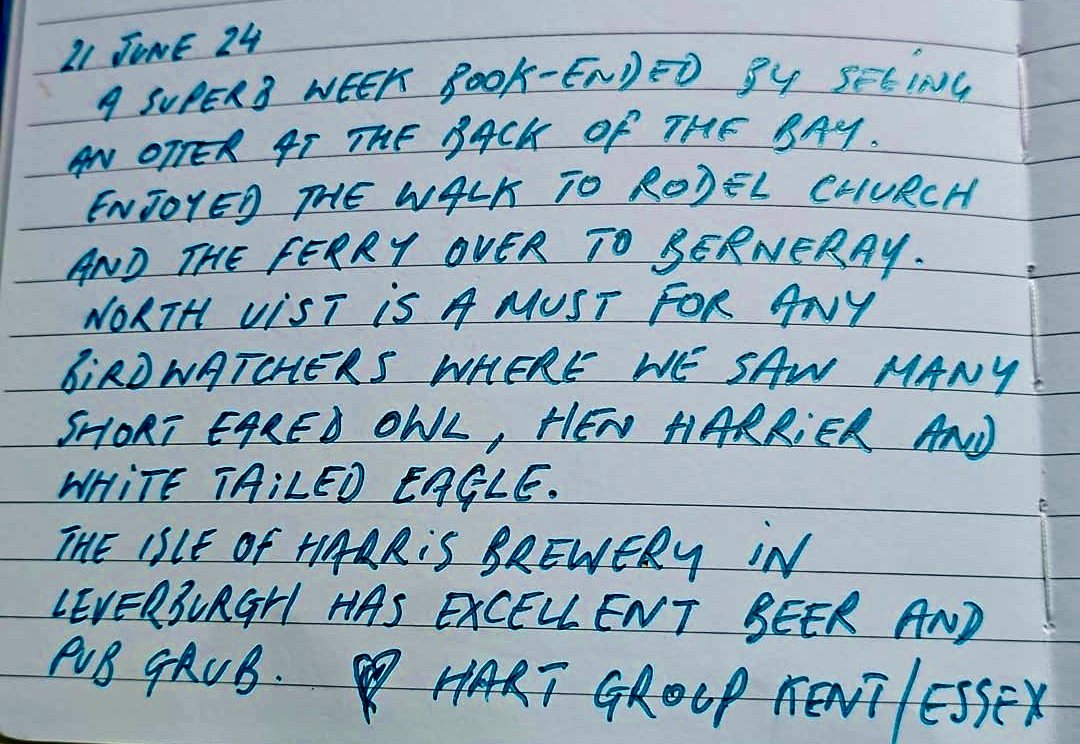 21 JUNE 24
A SUPERB WEEK BOOK-ENDED BY SEEING
AN OTTER AT THE BACK OF THE BAY.
ENJOYED THE WALK TO RODEL CHURCH
AND THE FERRY OVER TO BERNERAY.
NORTH UIST IS A MUST FOR ANY
BIRDWATCHERS WHERE WE SAW MANY
SHORT EARED OWL, HEN HARRIER AND
WHITE TAILED EAGLE.
THE ISLE OF HARRIS BREWERY IN
LEVERBURGH HAS EXCELLENT BEER AND
PUB GRUB. HART GROUP KENT/ESSEX